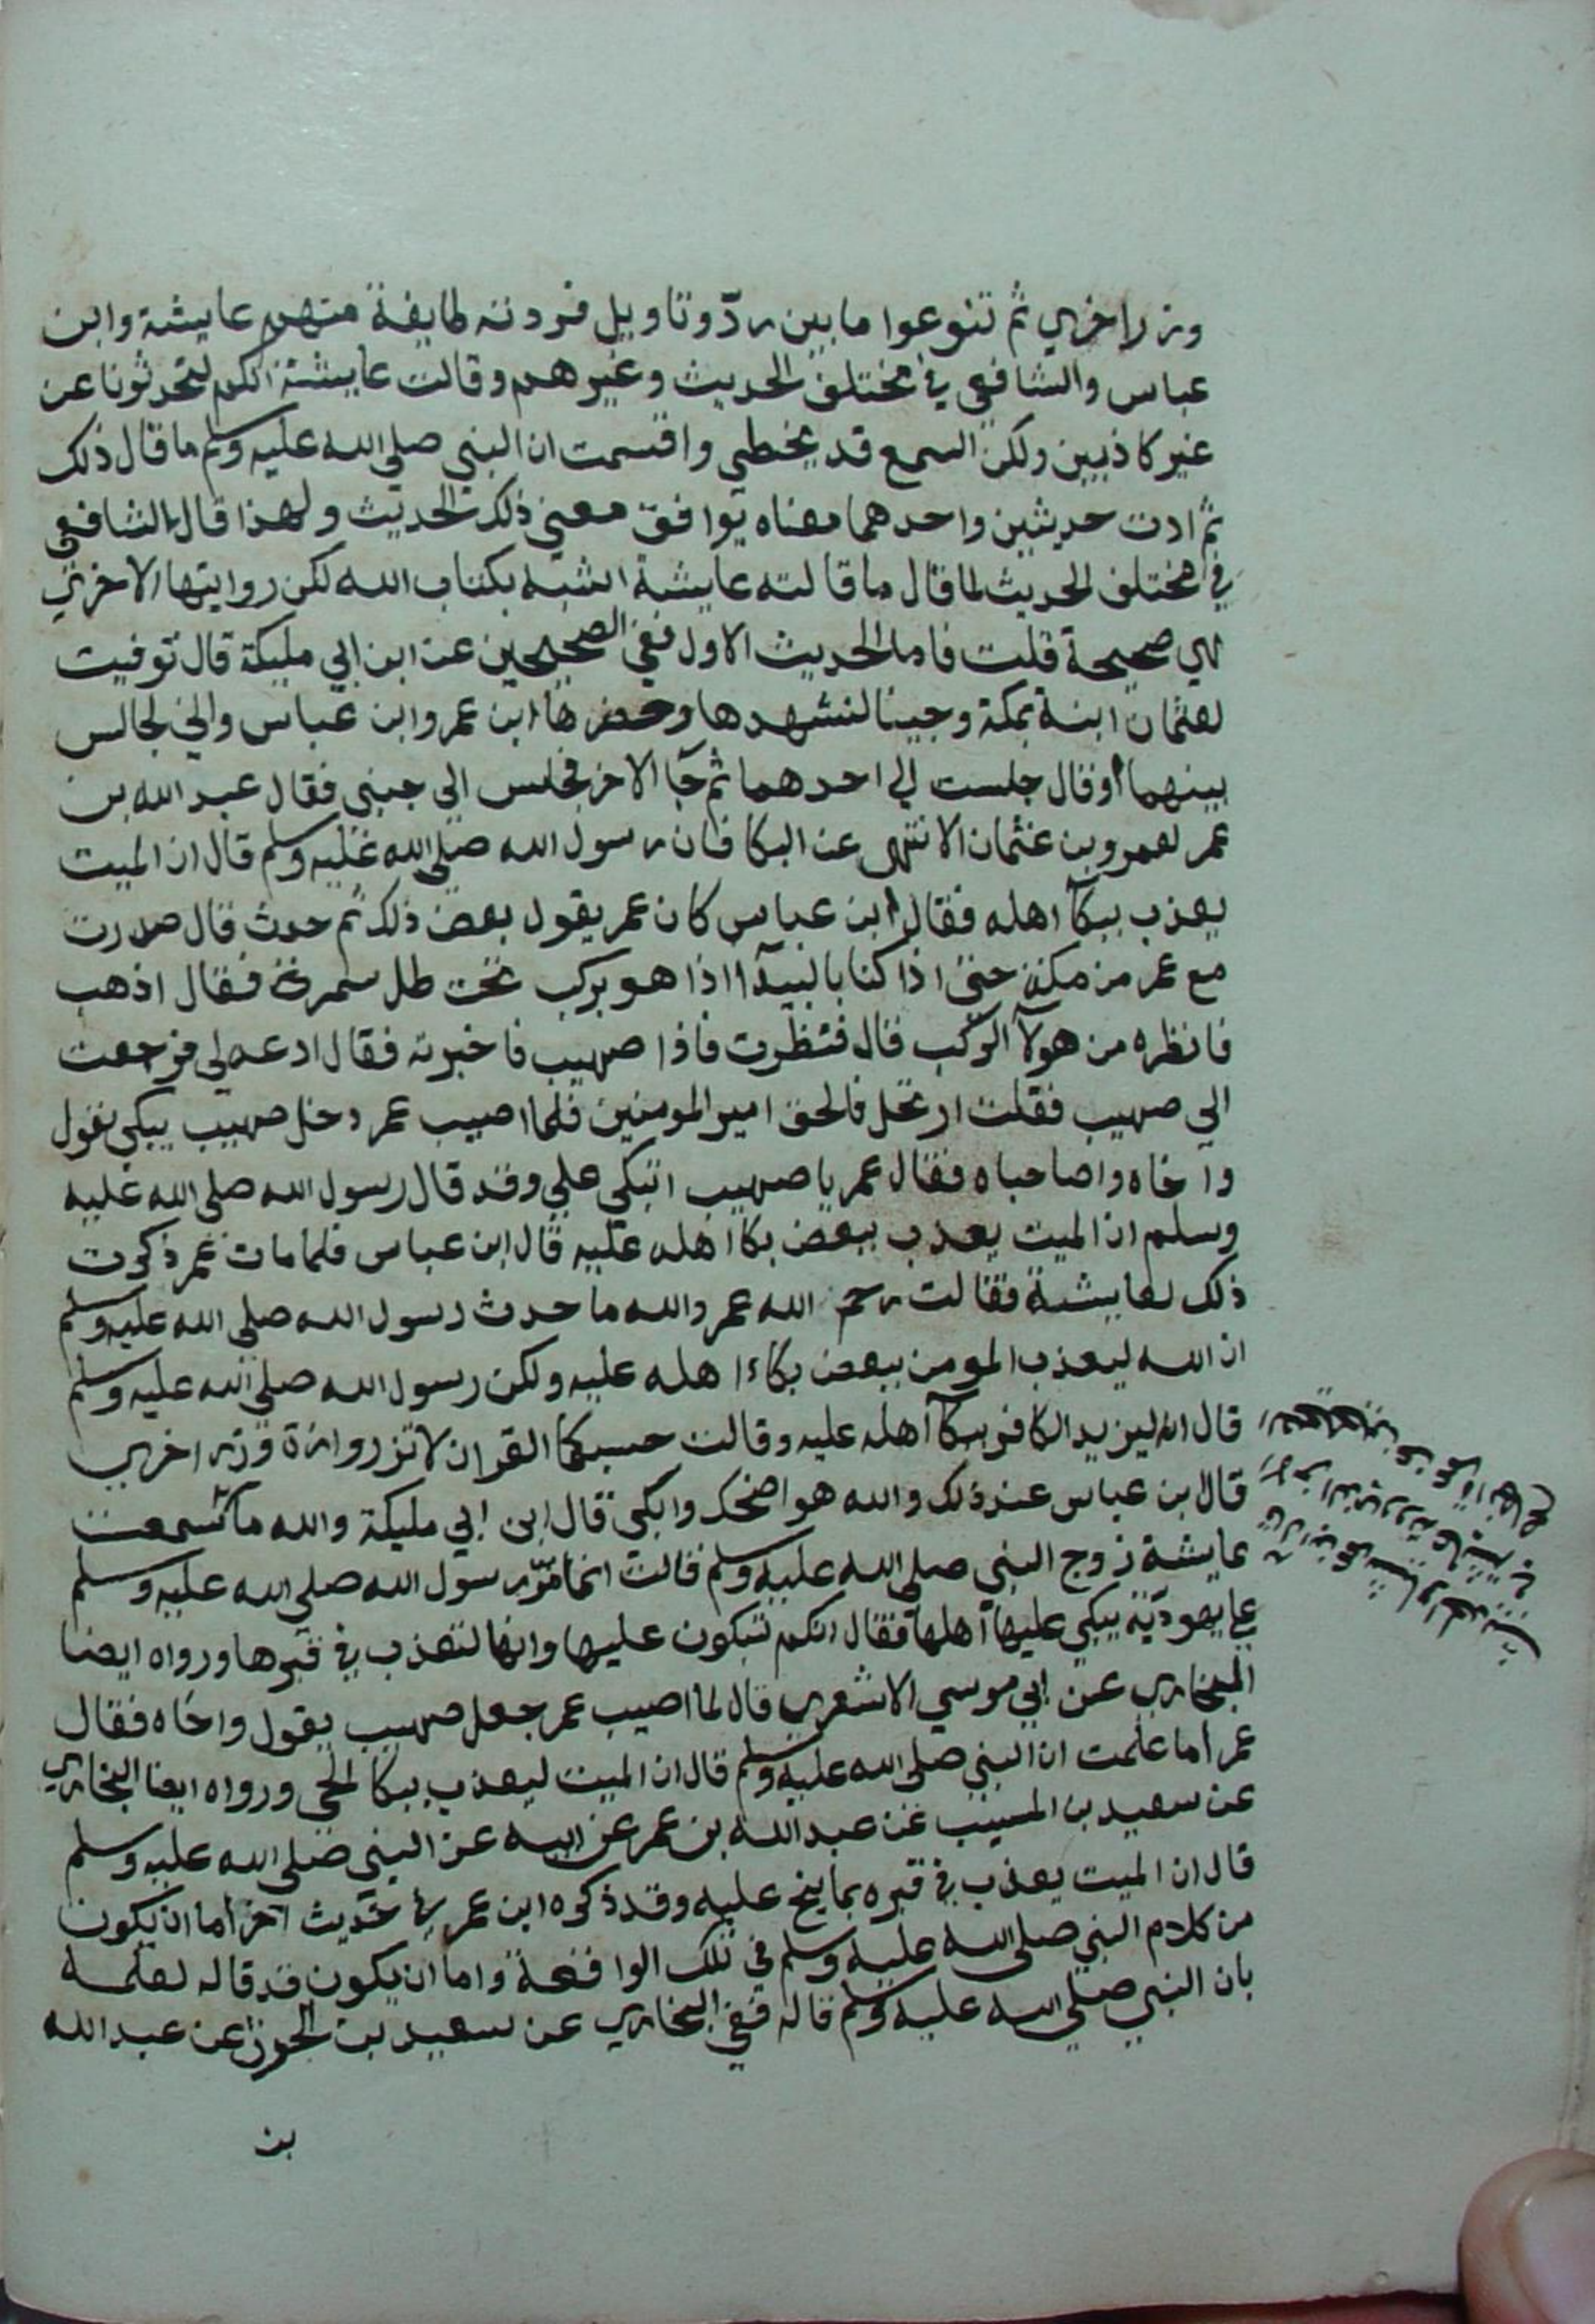 وزر اخري ثم تنوعوا ما بين ردّ وتاويل فردته طايفة منهم عايشة وابن
عباس والشافعي في مختلف الحديث وغيرهم وقالت عايشة انكم لتحدثونا عن
غير كاذبين ولكن السمع قد يخطي واقسمت ان النبي صلي الله عليه وسلم ما قال ذلك
ثم ادت حديثين واحدهما معناه يوافق معني ذلك الحديث ولهذا قال الشافعي
في مختلف الحديث لما قال ما قالته عايشة اشبه بكتاب الله لكن روايتها الاخري
هي صحيحة قلت فاما الحديث الاول ففي الصحيحين عن ابن ابي مليكة قال توفيت
لعثمان ابنة بمكة وجينا لنشهدها وحضرها ابن عمر وابن عباس واني لجالس
بينهما او قال جلست الي احدهما ثم جآ الاخر فجلس الي جنبي فقال عبد الله بن
عمر لعمرو بن عثمان الا تنهي عن البكا فان رسول الله صلي الله عليه وسلم قال ان الميت
يعذب ببكآ اهله فقال ابن عباس كان عمر يقول بعض ذلك ثم حدث قال صدرت
مع عمر من مكة حتي اذا كنا بالبيدآ اذا هو بركب تحت ظل سمرة فقال اذهب
فانظره من هولآ الركب قال فنظرت فاذا صهيب فاخبرته فقال ادعه لي فرجعت
الي صهيب فقلت ارتحل فالحق امير المومنين فلما اصيب عمر دخل صهيب يبكي يقول
وا خاه واصاحباه فقال عمر يا صهيب اتبكي علي وقد قال رسول الله صلي الله عليه
وسلم ان الميت يعذب ببعض بكا اهله عليه قال ابن عباس فلما مات عمر ذكرت
ذلك لعايشة فقالت رحم الله عمر والله ما حدث رسول الله صلي الله عليه وسلم
ان الله ليعذب المومن ببعض بكاء اهله عليه ولكن رسول الله صلي الله عليه وسلم
قال ان الله ليزيد الكافر ببكآ اهله عليه وقالت حسبكما القران لا تزر وازرة وزر اخري
قال بن عباس عند ذلك والله هو اضحك وابكي قال ابن ابي مليكة والله ما سمعت
عايشة زوج النبي صلي الله عليه وسلم قالت انما مرّ رسول الله صلي الله عليه وسلم
علي يهوديّة يبكي عليها اهلها فقال انكم تبكون عليها وانها لتعذب في قبرها ورواه ايضا
البخاري عن ابي موسي الاشعري قال لما اصيب عمر جعل صهيب يقول واخاه فقال
عمر اما علمت ان النبي صلي الله عليه وسلم قال ان الميت ليعذب ببكا الحي ورواه ايضا البخاري
عن سعيد بن المسيب عن عبد الله بن عمر عن ابيه عن النبي صلي الله عليه وسلم
قال ان الميت يعذب في قبره بما ينح عليه وقد ذكره ابن عمر في حديث آخر اما ان يكون
من كلام النبي صلي الله عليه وسلم في تلك الواقعة واما ان يكون قد قاله لعلمه
بان النبي صلي الله عليه وسلم قاله ففي البخاري عن سعيد بن الحرث عن عبد الله
بن